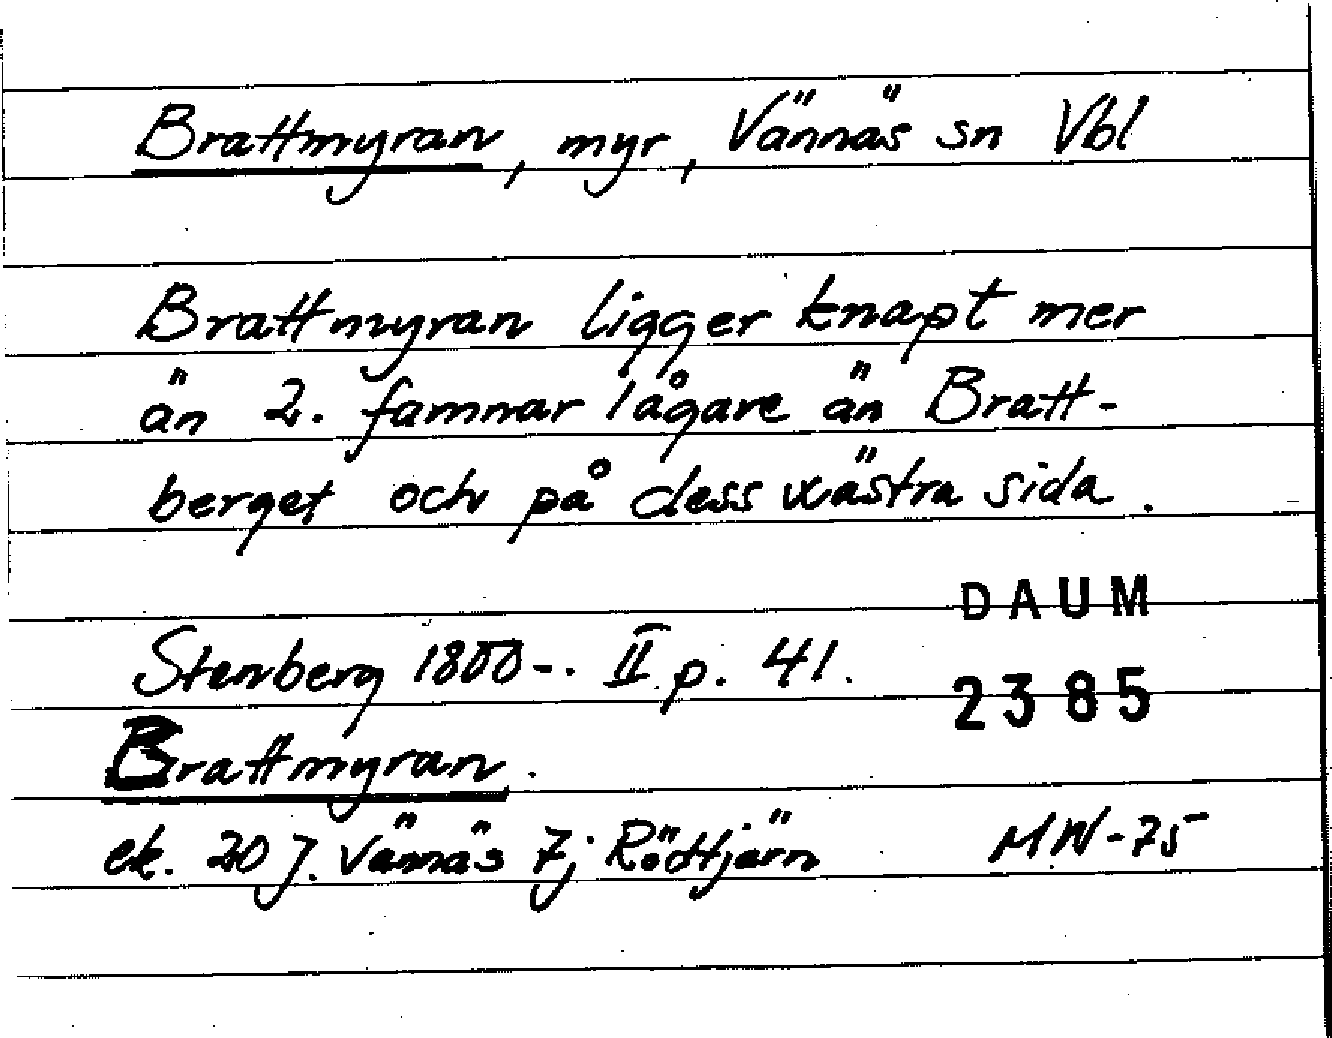 Brattmyran, myr, Vännäs sn Vbl
Brattmyran ligger knapt mer
än 2. famnar lågare än Bratt-
berget och på dess wästra sida.
DAUM
Stenberg 1800-. II p. 41.
2385
Brattmyran.
ek. 20 J. Vännäs 7j Rödtjärn MW-75